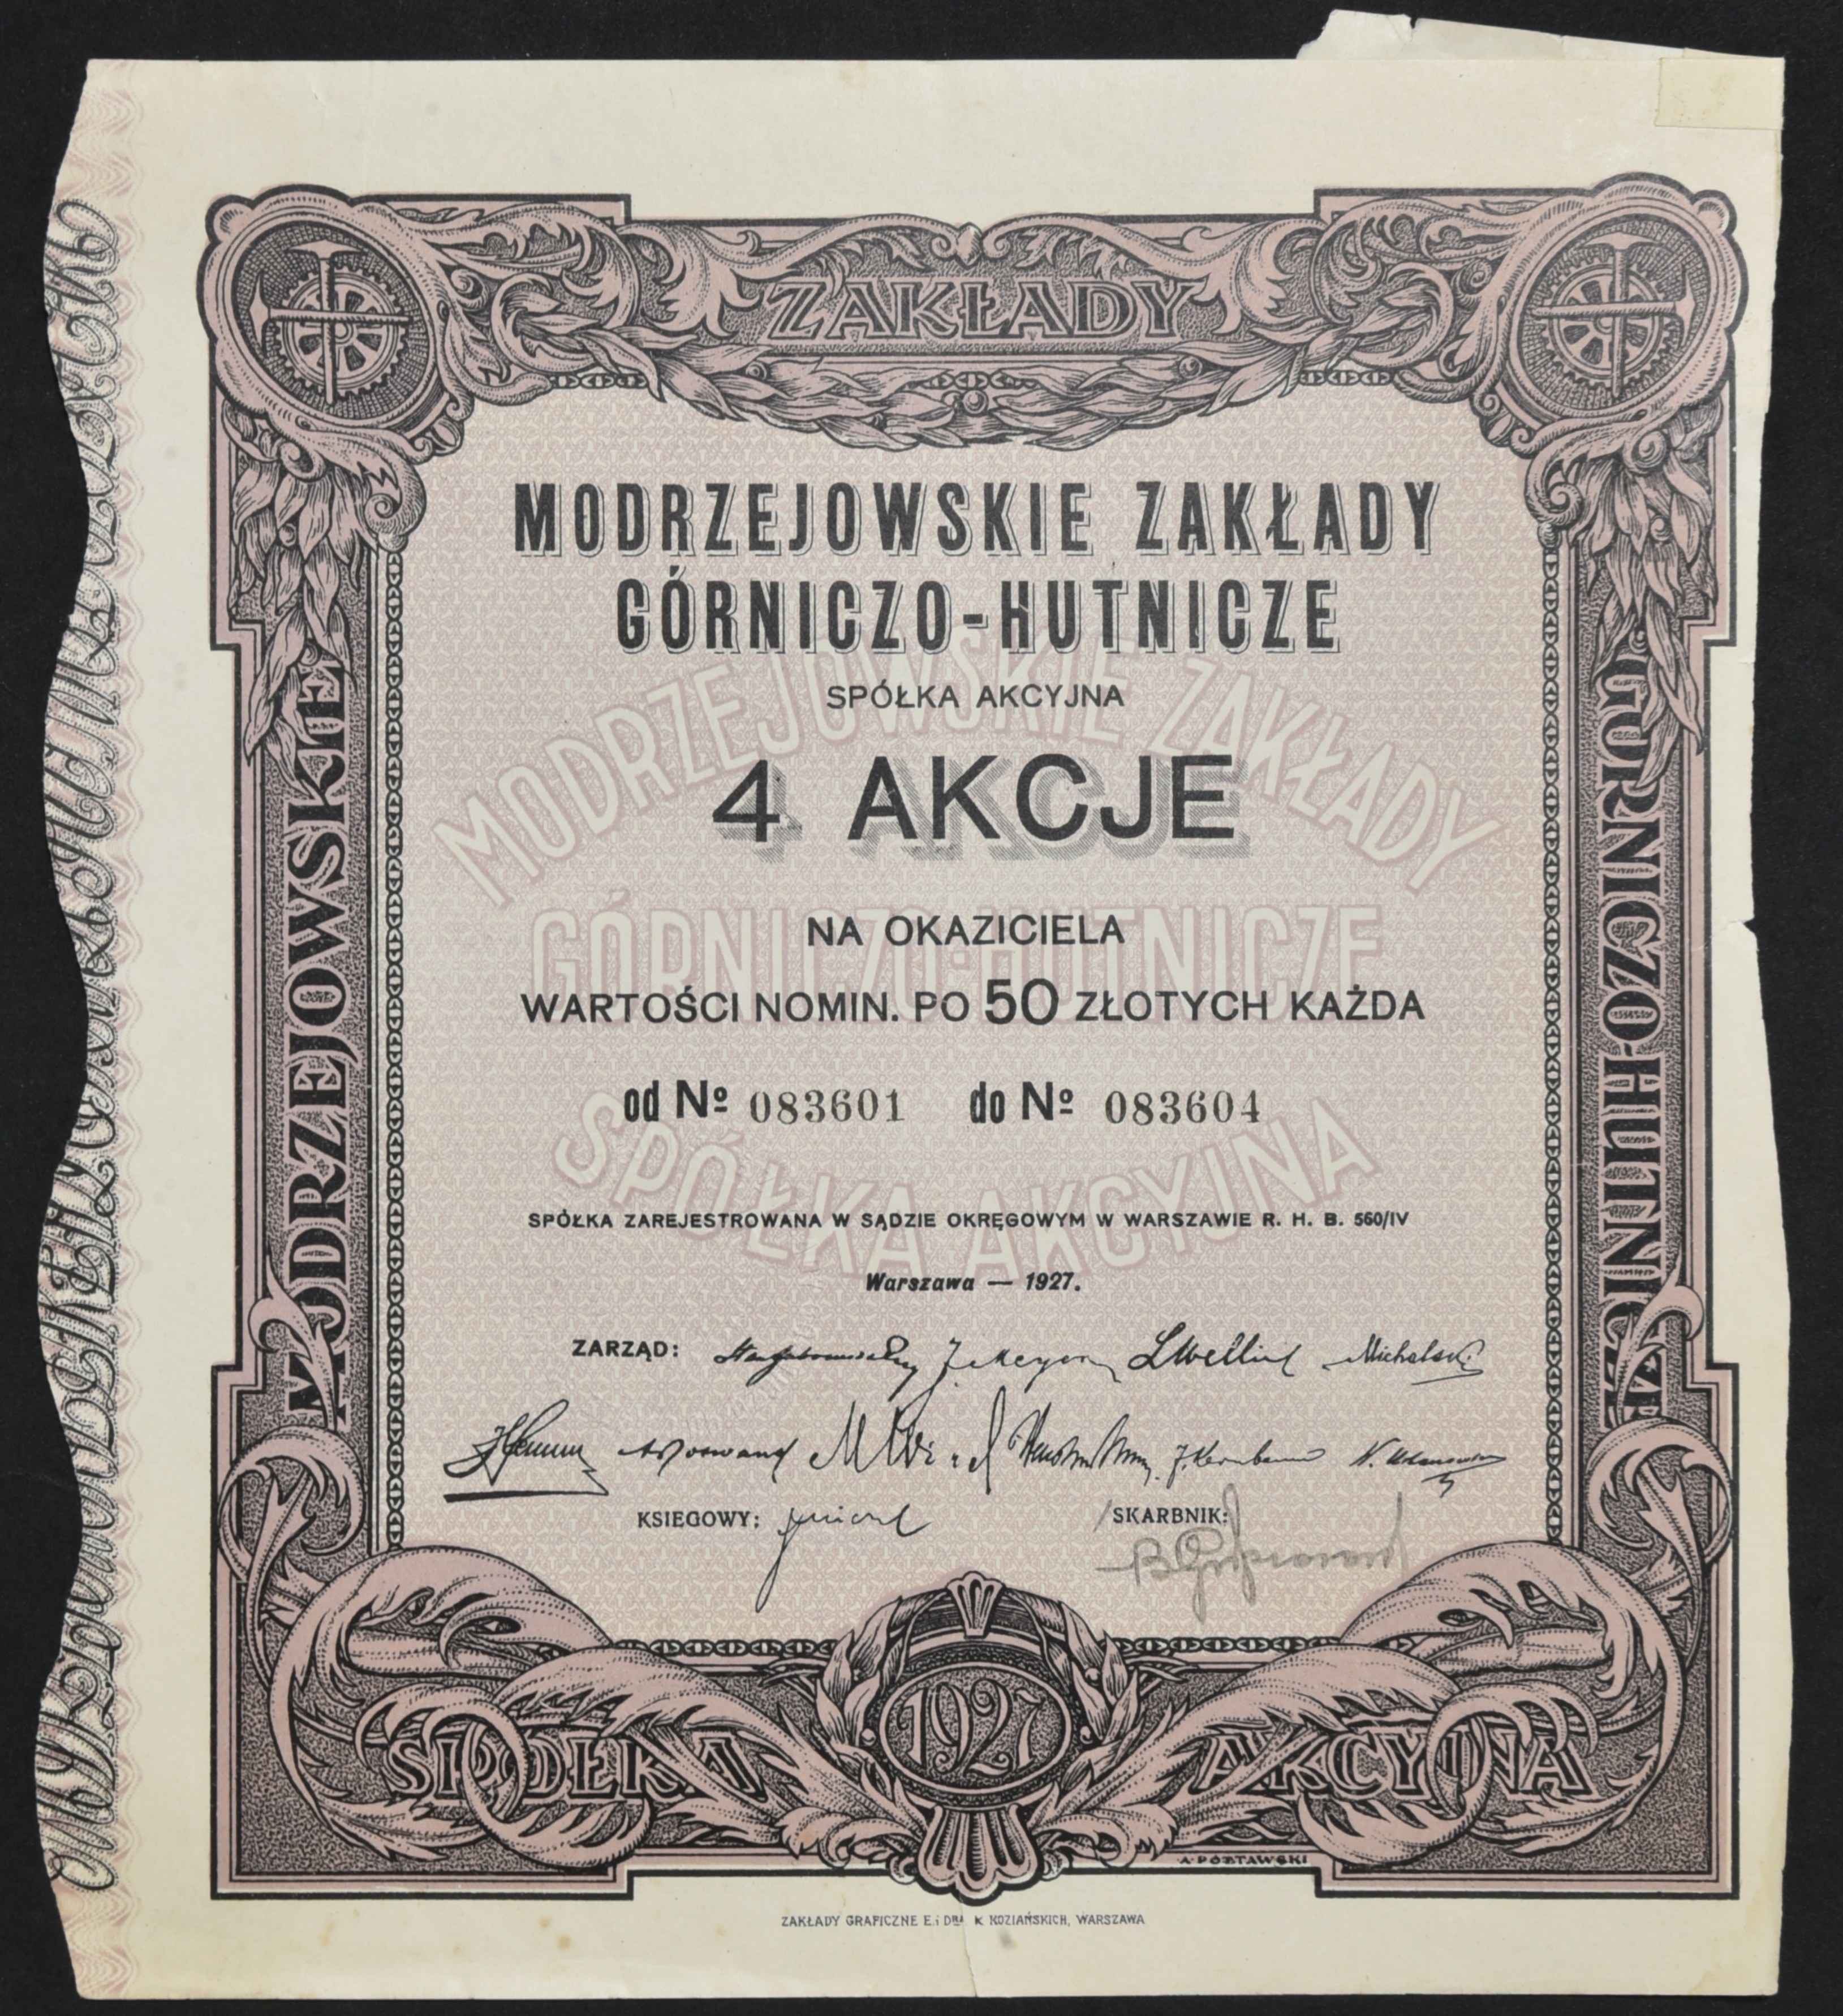 ZAKŁADY
MODRZEJOWSKIE
GÓRNICZO-HUTNICZE
MODRZEJOWSKIE ZAKŁADY
GÓRNICZO-HUTNICZE
SPÓŁKA AKCYJNA
MODRZEJOWSKIE ZAKŁADY
4 AKCJE
GÓRNICZO-HUTNICZE
NA OKAZICIELA
WARTOŚCI NOMIN. PO 50 ZŁOTYCH KAŻDA
od Nº 083601 do Nº 083604
SPÓŁKA AKCYJNA
SPÓŁKA ZAREJESTROWANA W SĄDZIE OKRĘGOWYM W WARSZAWIE R. H. B. 560/IV
Warszawa — 1927.
ZARZĄD: Michalski
KSIEGOWY: SKARBNIK:
1927
SPÓŁKA AKCYJNA
ZAKŁADY GRAFICZNE E. i DRA K KOZIAŃSKICH, WARSZAWA